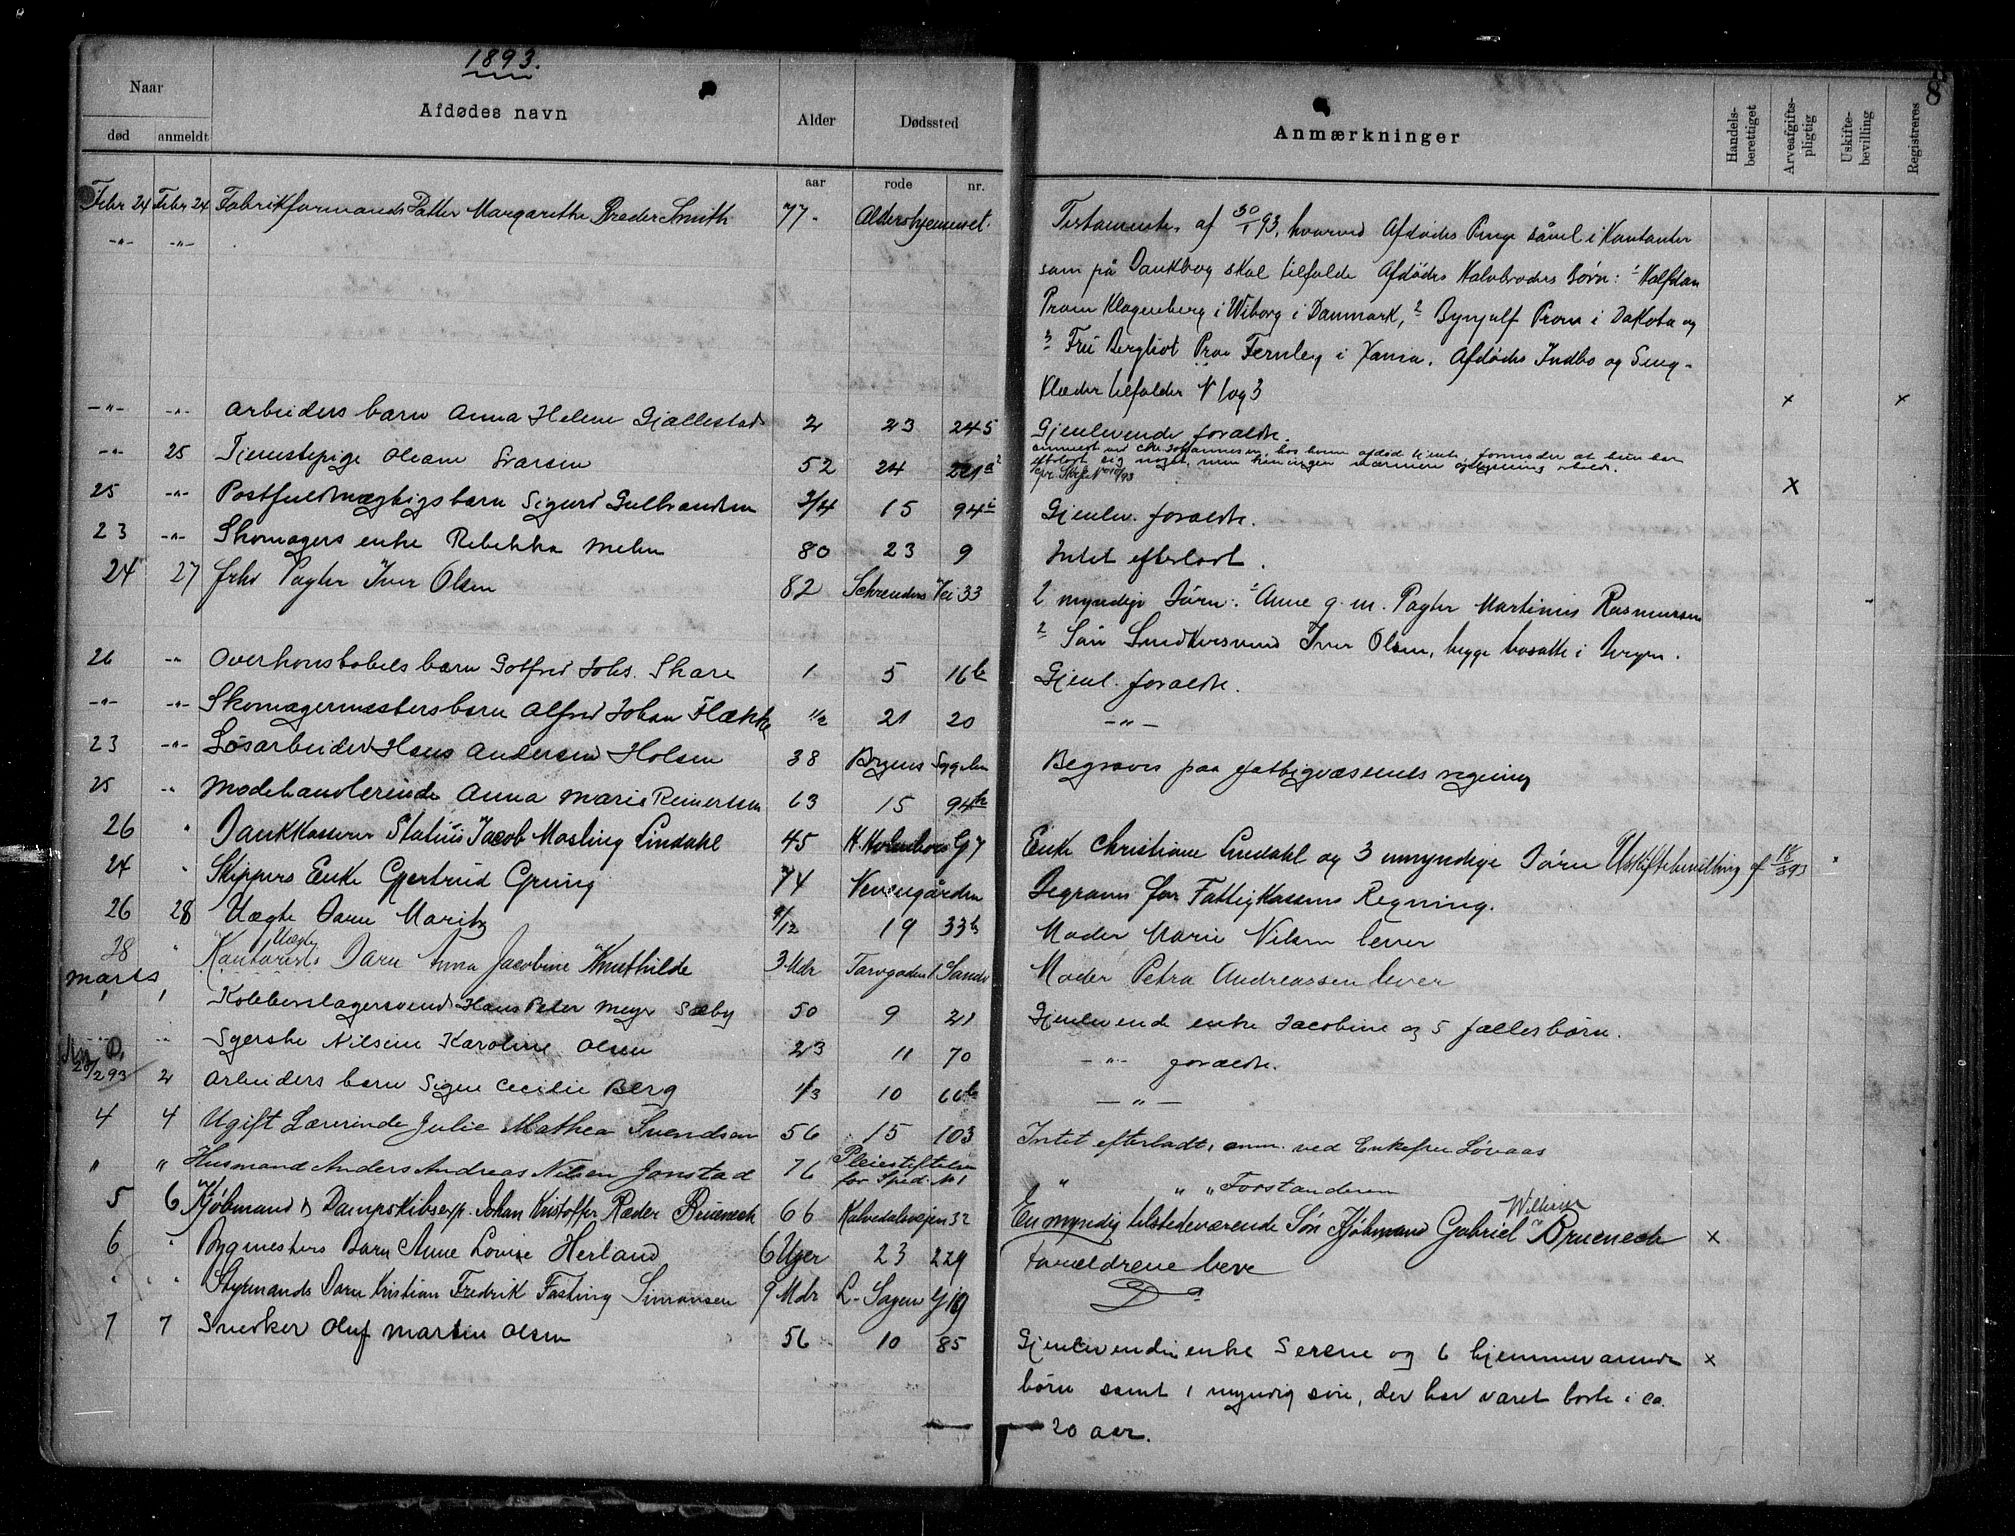 1893.
8
Naar
død anmeldt
Afdødes navn
Alder
aar
Dødssted
rode nr.
Anmærkninger
Handels-berettiget
Arveafgifts-pligtig
Uskifte-bevilling
Registreres
Febr 24 Febr 24 Fabrikformands Datter Margarethe Smith 77 - Aldershjemmet.
Testamente af 30/1 93, hvorved Afdødes Penge såvel i Kontanter
som på Bankbog skal tilfalde Afdødes Halvbroders Børn: 1 Halfdan
Prom Klagenberg i Wiborg i Danmark, 2 Bynjulf Prom i Dakota og
3 Fru Bergliot Prom Fernley i Xania. Afdødes Indbo og Seng-
Klæder tilfalder N 1 og 3 x x
-"- -"-
-"- -"- Arbeiders barn Anna Helene Gjallestad 2 23 245 Gjenlevende forældre.
-"- 25 Tjenestepige Oleane Svarsen 52 24 221
anmeldt ved Chr. Johannesen, hos hvem afdød tjente, formoder at hun har
efterladt sig noget, men kun ingen nærmere oplysning
x
25 -"- Postfuldmægtigs barn Sigurd Gulbrandsen 3/4 15 94 Gjenlev. forældre.
23 -"- Skomagers enke Rebekka Melen 80 23 9 Intet efterladt.
24 27 Fhv Pagter Iver Olsen 82 Vei 33 2 myndige Børn: 1 Anne g. m. Pagter Martinus Rasmussen
2 Søn Snedkersvend Iver Olsen, begge bosatte i Bergen.
26 -"- Overkonstabels barn Gotfred Johs. Skare 1 5 16b Gjenl. forældre.
-"- -"- Skomagermesters barn Alfred Johan Flække 1/2 21 20 -"-
23 -"- Løsarbeider Hans Andersen Holsen 38 Byens Sygehus Begraves paa fattigvæsenets regning
25 -"- Modehandlerinde Anna Marie Reinertsen 63 15 94b
26 " Bankkasserer Statius Jacob Mosling Lindahl 45 7 Enke Christiane Lindahl og 3 umyndige Børn Uskiftebevilling af 18/3 93
24 " Skippers Enke Gjertrud Gruing 74 Nevengården Begraves for Fattigkassens Regning.
26 28 Uægte Barn Maritz /12 19 33b Moder Marie Nilsen lever
28 " Uægte Barn Anna Jacobine Knuthilde 3 Mdr Torvgaden 1 Sandv Moder Petra Andreassen lever
marts
1 1 Kobberslagersvend Hans Peter Meyer Sæby 50 9 21 Gjenlevende enke Jacobine og 5 fællesbørn.
-"- Syerske Nilsine Karoline Olsen 23 11 70 -"- forældre.
28/2 93 2 Arbeiders barn Signe Cecilie Berg 1/3 10 66b -"-
4 4 Ugift Lærerinde Julie Mathea Svendsen 56 15 103 Intet efterladt, anm. ved Enkefru Løvaas
" " Husmand Anders Andreas Nilsen Jonstad 76 Pleiestiftelsen for Sped. N 1 " " " Forstanderen
5 6 Kjøbmand & Dampskibsexp. Johan Kristoffer Ræder Brueneck 66 Kalvedalsvejen 32 En myndig tilstedeværende Søn Kjøbmand Gabriel Brueneck x
6 " Bygmesters Barn Anne Lovise Herland 6 Uger 23 229 Forældrene leve
" " Styrmands Barn Kristian Fredrik Fasting Simonsen 9 Mdr L. Sagen G 19 Do
7 7 Snedker Oluf Martin Olsen 56 10 85 Gjenlevende enke Serene og 6 hjemmeværende x
børn samt 1 myndig søn, der har været borte i ca.
20 aar.